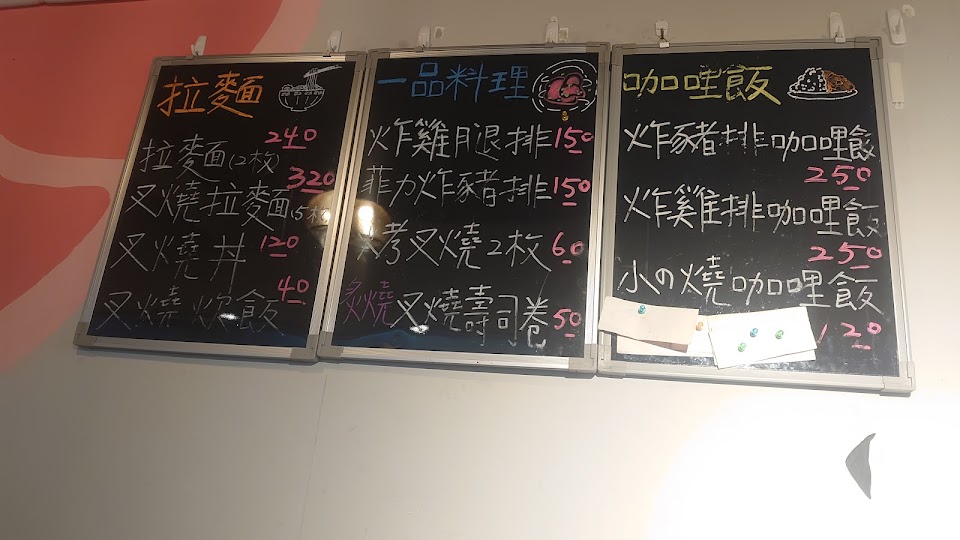 拉麵
240
拉麵(2枚)
320
叉燒拉麵(5枚
叉燒丼 120
40
叉燒炊飯
一品料理
炸雞腿排 150
菲力炸豬排 150
烤叉燒2枚 60
炙燒叉燒壽司卷 50
咖哩飯
炸豬排咖哩飯
250
炸雞排咖哩飯
250
小の燒咖哩飯
120